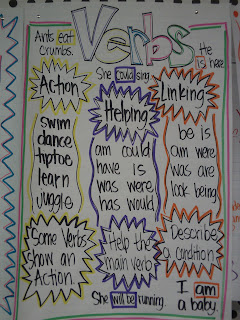 Verbs
Ants eat
crumbs.
He
is here.
She could sing.
Action
swim
dance
tiptoe
learn
juggle
Some Verbs
show an
Action.
Helping
am could
have is
was were
has would
Help the
main verb
She will be running.
Linking
be is
am were
was are
look being
Describe
a condition
I am
a baby.